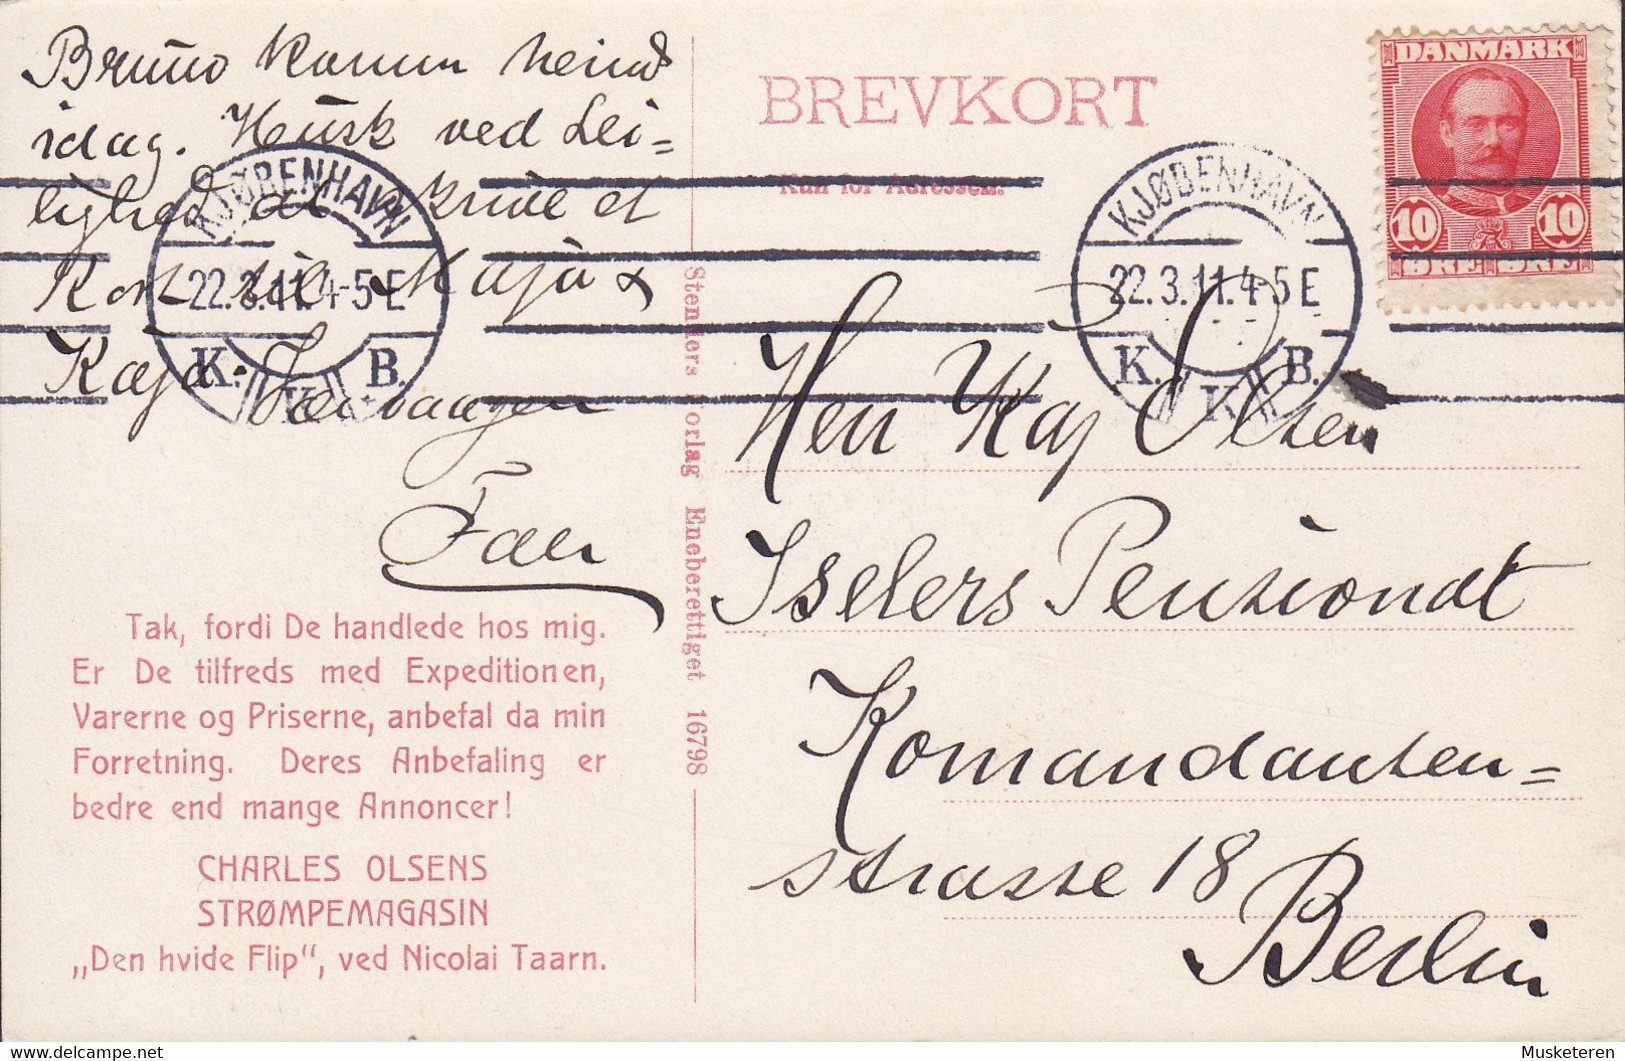 Bruno kommer heim
idag. Husk ved Lei=
lighed at skrive et
Kort til Kaja &
Kaja.
Faer
BREVKORT
Kun for Adressen.
DANMARK
10 10
ØRE ØRE
KJØBENHAVN
22.3.11. 4-5 E
K. K. B.
KJØBENHAVN
22.3.11. 4-5 E
K. K. B.
Herr Kaj Olsen
Iselers Pensionat
Komandanten=
strasse 18
Berlin
Stenders Forlag Eneberettiget 16798
Tak, fordi De handlede hos mig.
Er De tilfreds med Expeditionen,
Varerne og Priserne, anbefal da min
Forretning. Deres Anbefaling er
bedre end mange Annoncer!
CHARLES OLSENS
STRØMPEMAGASIN
„Den hvide Flip“, ved Nicolai Taarn.
https://www.delcampe.net
Musketeren